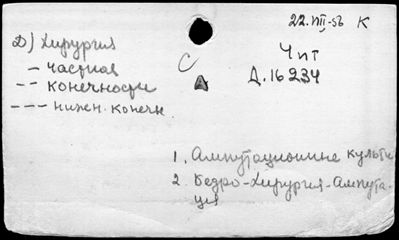 22.VIII-56 К
Д) Хирургия
Чпт
— частная
С
Д.16234
— — конечности
— — — нижн. конечн.
1. Ампутационные культи
2. Бедро-Хирургия-Ампута-
ция